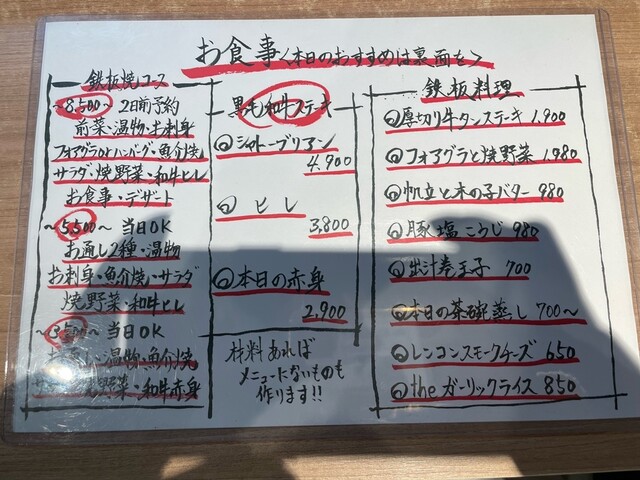 お食事〈本日のおすすめは裏面を〉
鉄板焼コース
〜8,500〜 2日前予約
前菜・温物・お刺身
フォアグラのハンバーグ・魚介焼
サラダ・焼野菜・和牛ヒレ
お食事・デザート
〜5,500〜 当日OK
お通し2種・温物
お刺身・魚介焼・サラダ
焼野菜・和牛ヒレ
〜3,500〜 当日OK
お通し・温物・魚介焼
サラダ・焼野菜・和牛赤身
黒毛和牛ステーキ
シャトーブリアン
4,900
ヒレ
3,800
本日の赤身
2,900
材料あれば
メニューにないものも
作ります!!
鉄板料理
厚切り牛タンステーキ 1,900
フォアグラと焼野菜 1,980
帆立と木の子バター 980
豚塩こうじ 980
出汁巻玉子 700
本日の茶碗蒸し 700〜
レンコンスモークチーズ 650
theガーリックライス 850